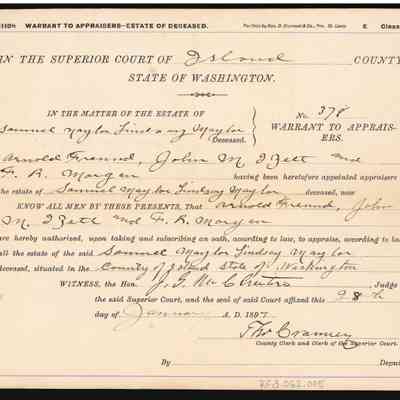 1104 WARRANT TO APPRAISERS—ESTATE OF DECEASED.
E Class
IN THE SUPERIOR COURT OF Island COUNTY
STATE OF WASHINGTON.
IN THE MATTER OF THE ESTATE OF
Samuel Naylor Lindsay Naylor
Deceased.
No. 378
WARRANT TO APPRAIS-
ERS.
Arnold Freund, John M. Izett and
F. R. Morgan having been heretofore appointed appraisers
the estate of Samuel Naylor Lindsay Naylor deceased, now
KNOW ALL MEN BY THESE PRESENTS, That Arnold Freund, John
M. Izett and F. R. Morgan
are hereby authorized, upon taking and subscribing an oath, according to law, to appraise, according to la
all the estate of the said Samuel Naylor Lindsay Naylor
deceased, situated in the County of Island State of Washington
WITNESS, the Hon. J. G. Judge
the said Superior Court, and the seal of said Court affixed this 28th
day of January A. D. 1897
County Clerk and Clerk of the Superior Court.
By Deputy